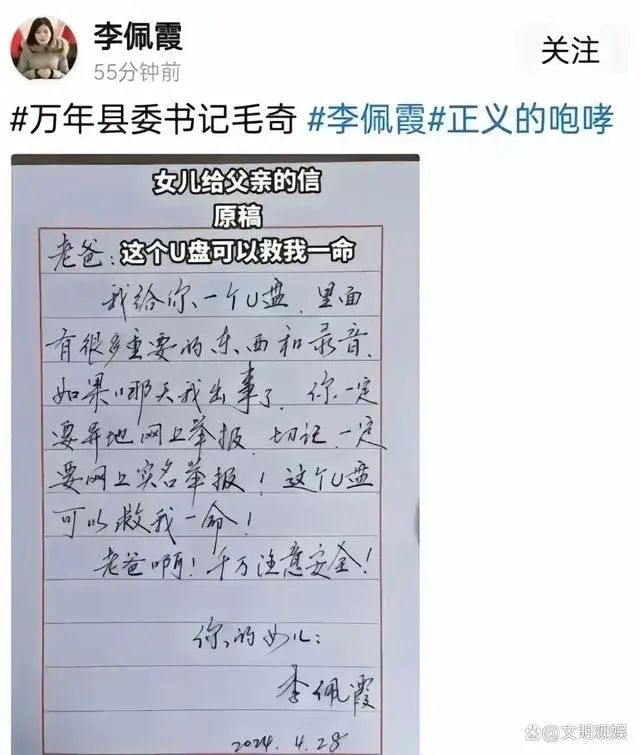 李佩霞
55分钟前
关注
#万年县委书记毛奇 #李佩霞#正义的咆哮
女儿给父亲的信
原稿
这个U盘可以救我一命
老爸：
我给你一个U盘，里面
有很多重要的东西和录音，
如果哪天我出事了，你一定
要异地网上举报，切记，一定
要网上实名举报！这个U盘
可以救我一命！
老爸啊！千万注意安全！
你的女儿：
李佩霞
2024.4.28
@文明观娱